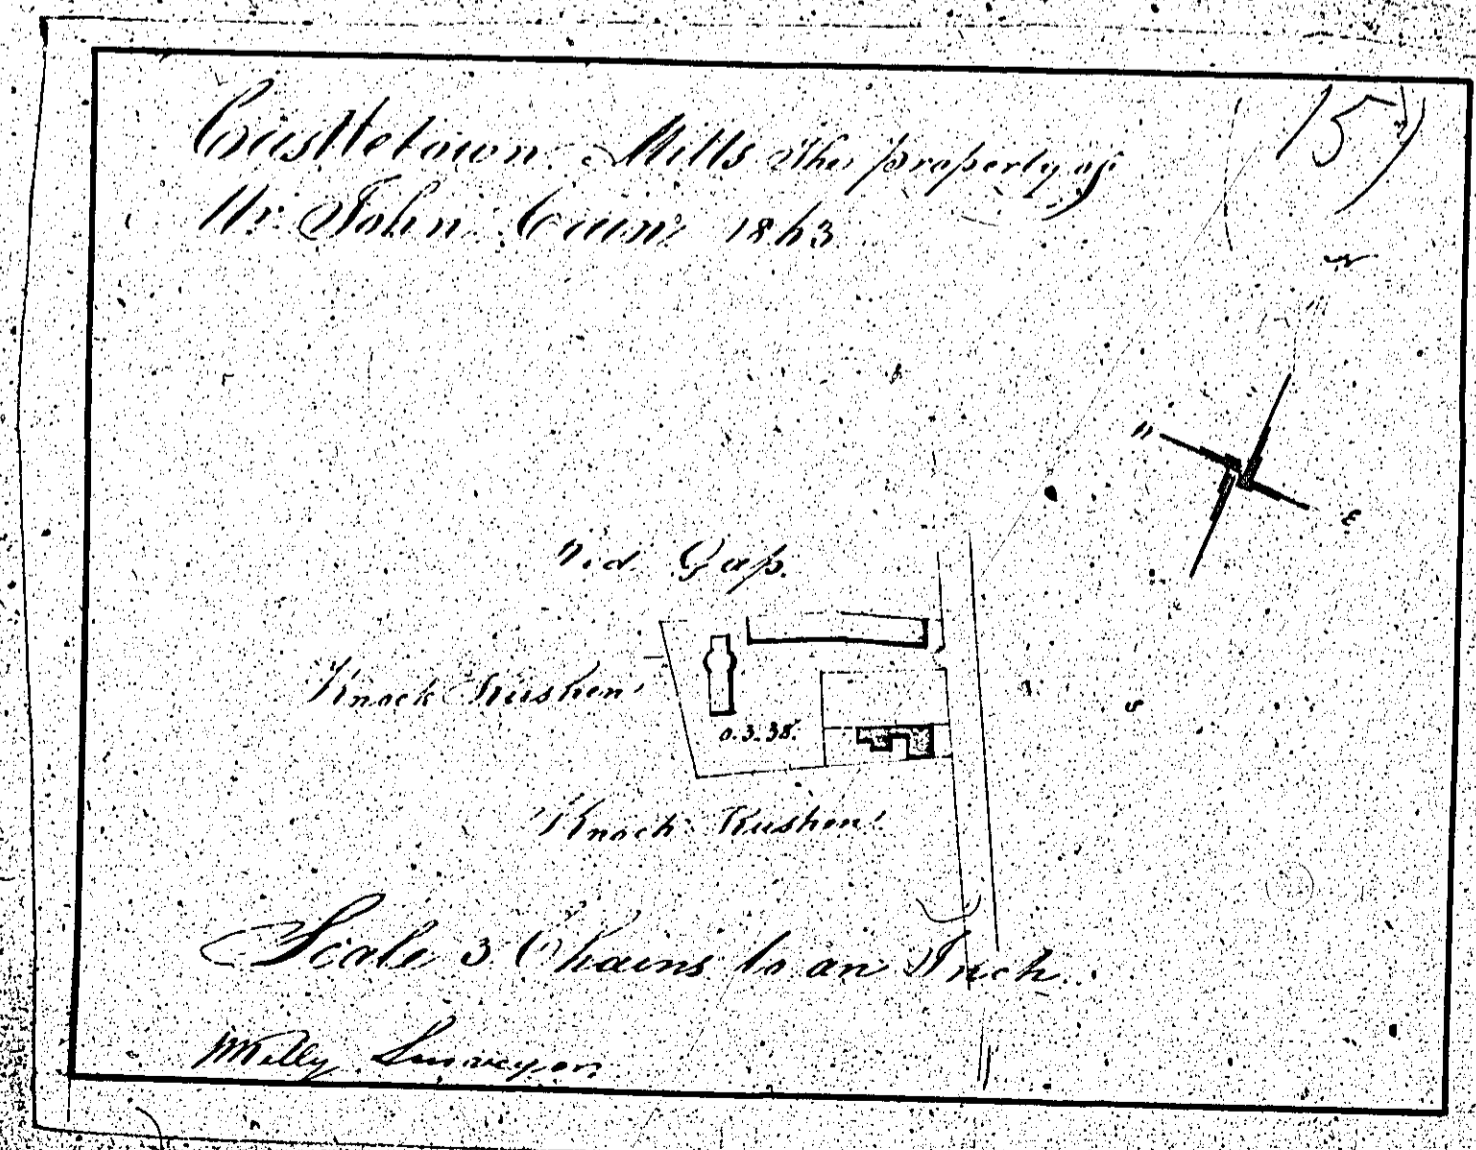 Castletown Mills the property of
Mr. John Cain 1863
15
N
E
S
Gap
Knock Rushen
0.3.38.
Knock Rushen
Scale 3 Chains to an Inch
Surveyor